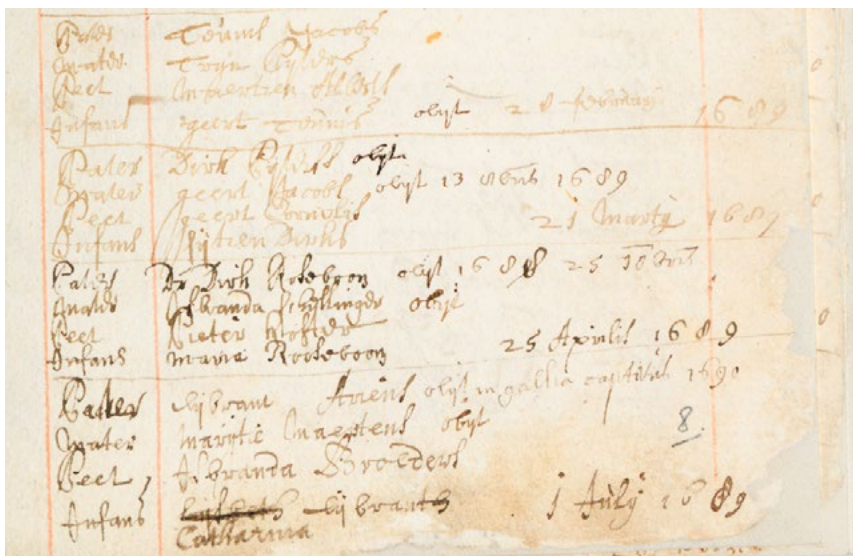 Pater Teunis Jacobs
Mater Tryn
Pect Maertien
Infans geert Teunis obijt 28 february 1689
Pater Dirk obijt
Mater geert Jacobs obijt 13 8bris 1689
Pect geert Cornelis 21 Martij 1689
Infans Sijtien Dirks
Pater Dr Dirk Rooteboom obijt 1688 25 10bris
Mater Isbranda Schellinger obijt
Pect Pieter
Infans maria Rooteboom 25 Aprilis 1689
Pater Sijbrant Ariens obijt in gallia captivus 1690
Mater Marytie Maertens obijt
8.
Pect Isbranda Broeders
Infans Sijbrants 1 July 1689
Catharina